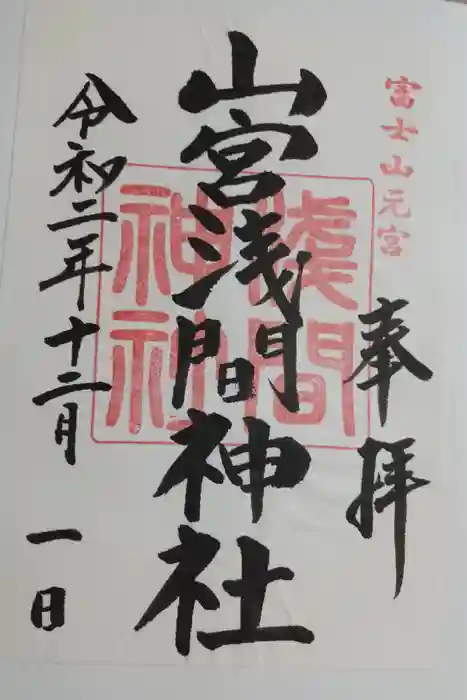 富士山元宮
奉拝
山宮浅間神社
淺間
神社
令和二年十二月一日